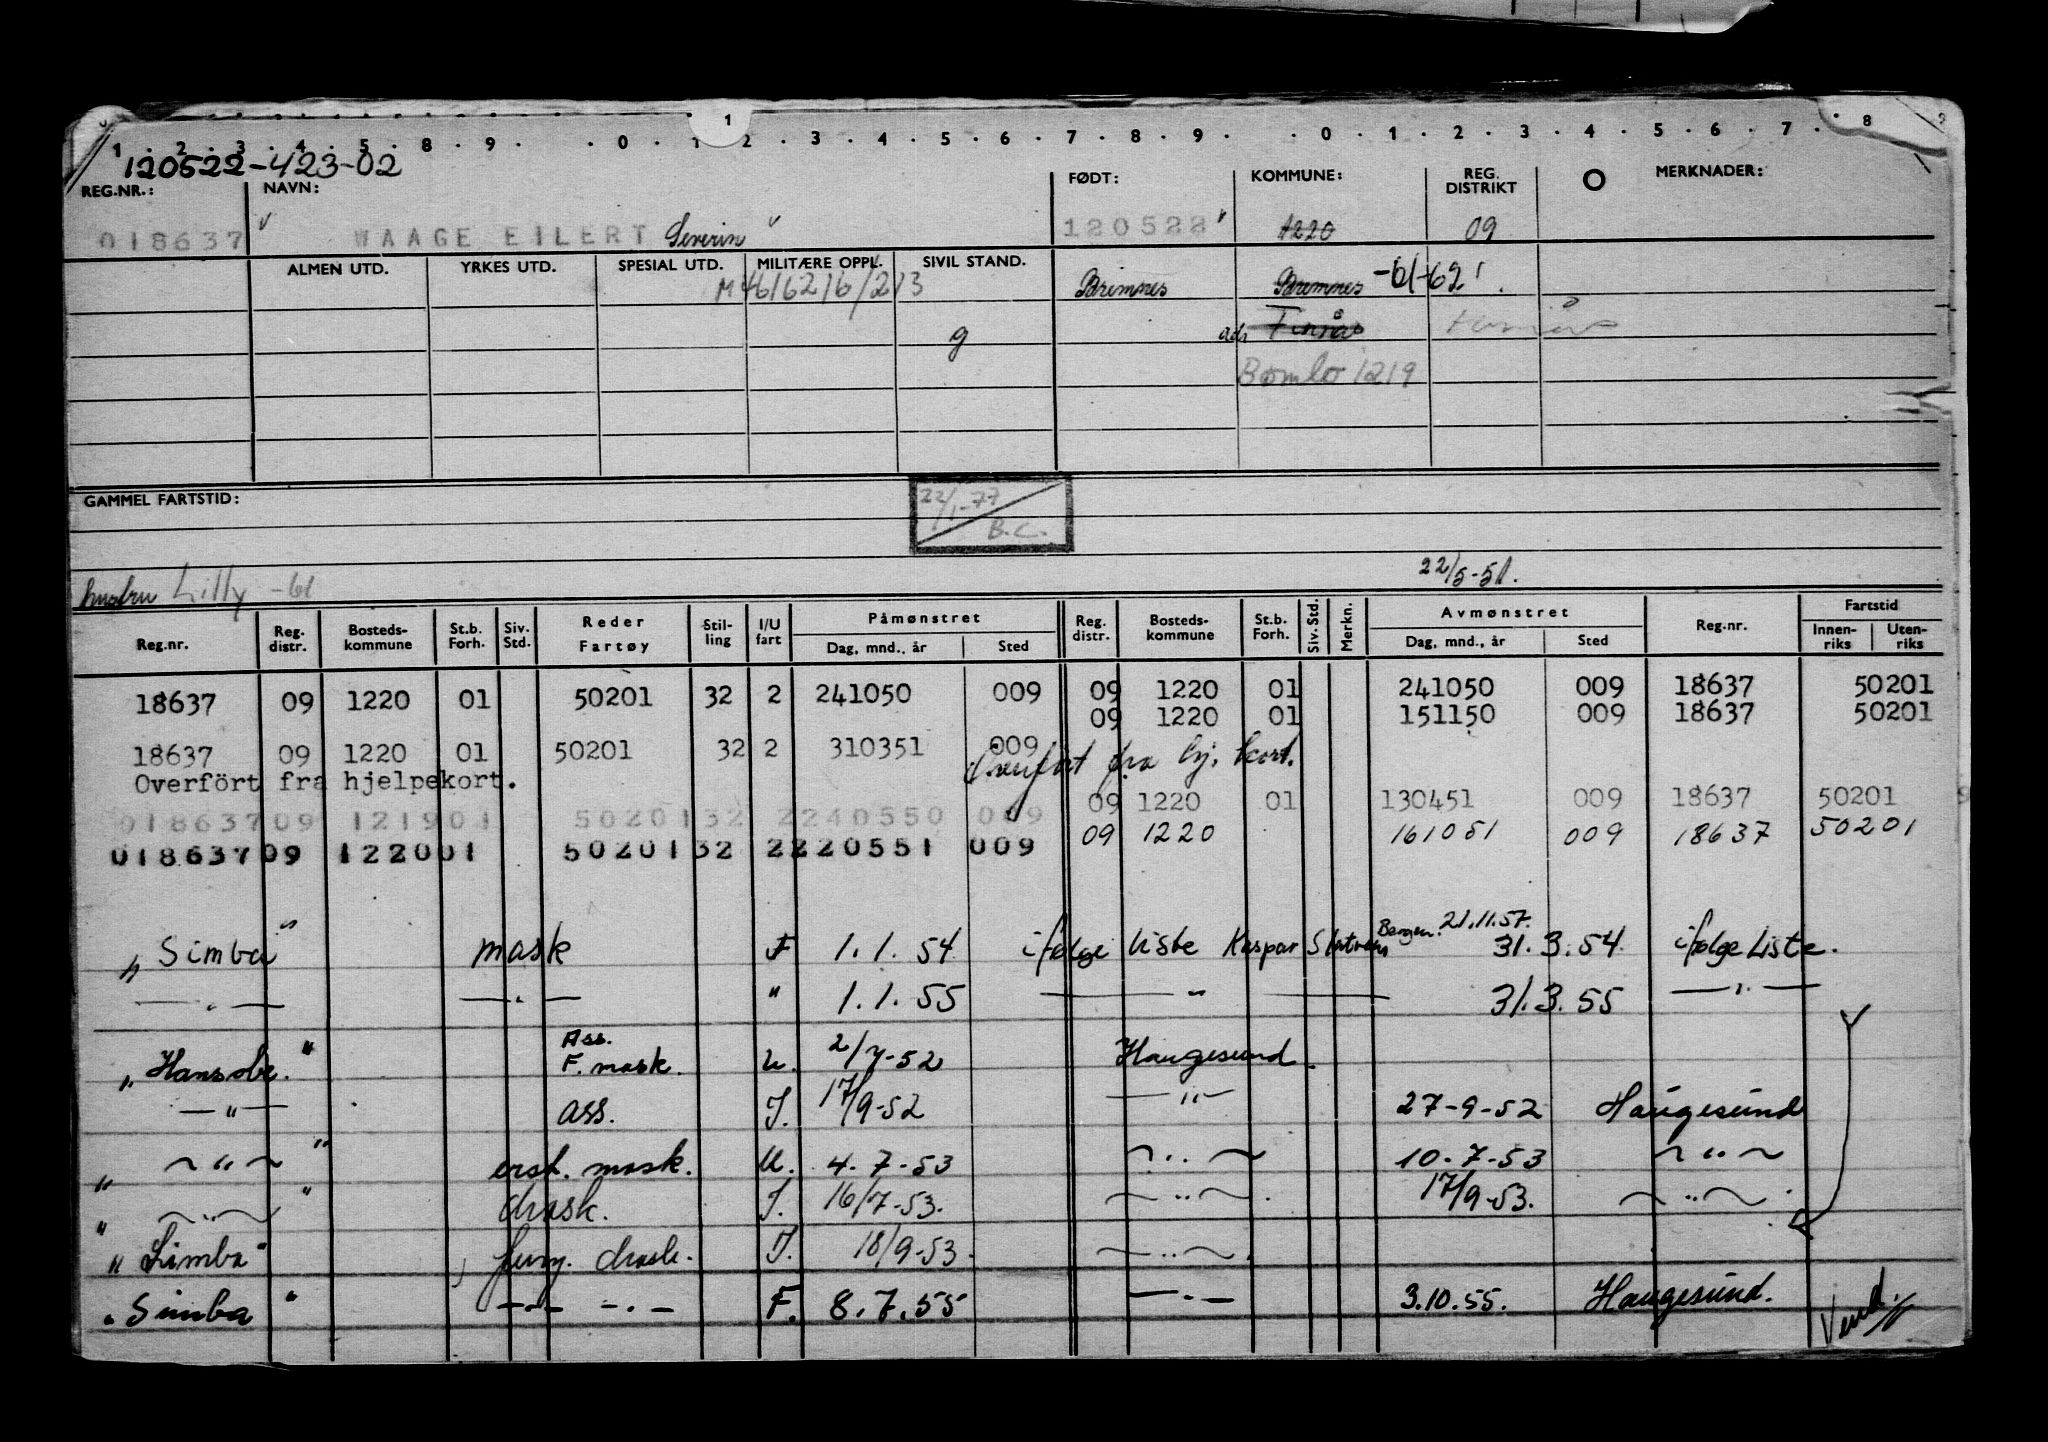 1
1 . 2 . 3 . 4 . 5 . 8 . 9 . . 0 . 1 2 . 3 . 4 . 5 . 6 . 7 . 8 . 9 . . 0 . 1 . 2 . 3 . 4 . 5 . 6 . 7 . 8 9
120522-423-02
REG.NR.: NAVN: FØDT: KOMMUNE: REG. DISTRIKT O MERKNADER:
018637 WAAGE EILERT Severin 120522 1220 09
ALMEN UTD. YRKES UTD. SPESIAL UTD. MILITÆRE OPPL. SIVIL STAND.
Bremnes Bremnes -61-62
g adr Finnås
Bømlo 1219
GAMMEL FARTSTID: 22/1-77 B.C.
hustru Lilly -61 22/5-51.
Reg.nr. Reg. distr. Bosteds-kommune St.b. Forh. Siv. Std. Reder Fartøy Stil-ling I/U fart Påmønstret Dag, mnd., år Sted Reg. distr. Bosteds-kommune St.b. Forh. Siv. Std. Merkn. Avmønstret Dag, mnd., år Sted Reg.nr. Fartstid Innen-riks Uten-riks
18637 09 1220 01 50201 32 2 241050 009 09 1220 01 241050 009 18637 50201
09 1220 01 151150 009 18637 50201
18637 09 1220 01 50201 32 2 310351 009 Overført fra hj. kort.
Overfört fra hjelpekort.
09 1220 01 130451 009 18637 50201
01863709 121901 5020132 2240550 009
09 1220 161051 009 18637 50201
01863709 122001 5020132 2220551 009
Bergen. 21.11.57.
"Simba" mask F 1.1.54 ifølge liste Kaspar 31.3.54 ifølge Liste.
— " — — " — " 1.1.55 — " — 31.3.55 — " —
Ass.
" F. mask. U. 2/7-52 Haugesund.
— " — ass. I. 17/9-52 — " — 27-9-52 Haugesund
" ~ " ~ " mask. U. 4-7-53 ~ " ~ 10-7-53 ~ " ~
" ~ " ~ " mask. I. 16/7-53. ~ " ~ 17/9-53. ~ " ~
"Simba" mask. I. 18/9-53. ~ " ~
"Simba" — " — — " — F. 8.7.55 — " — 3.10.55. Haugesund.
Vend.